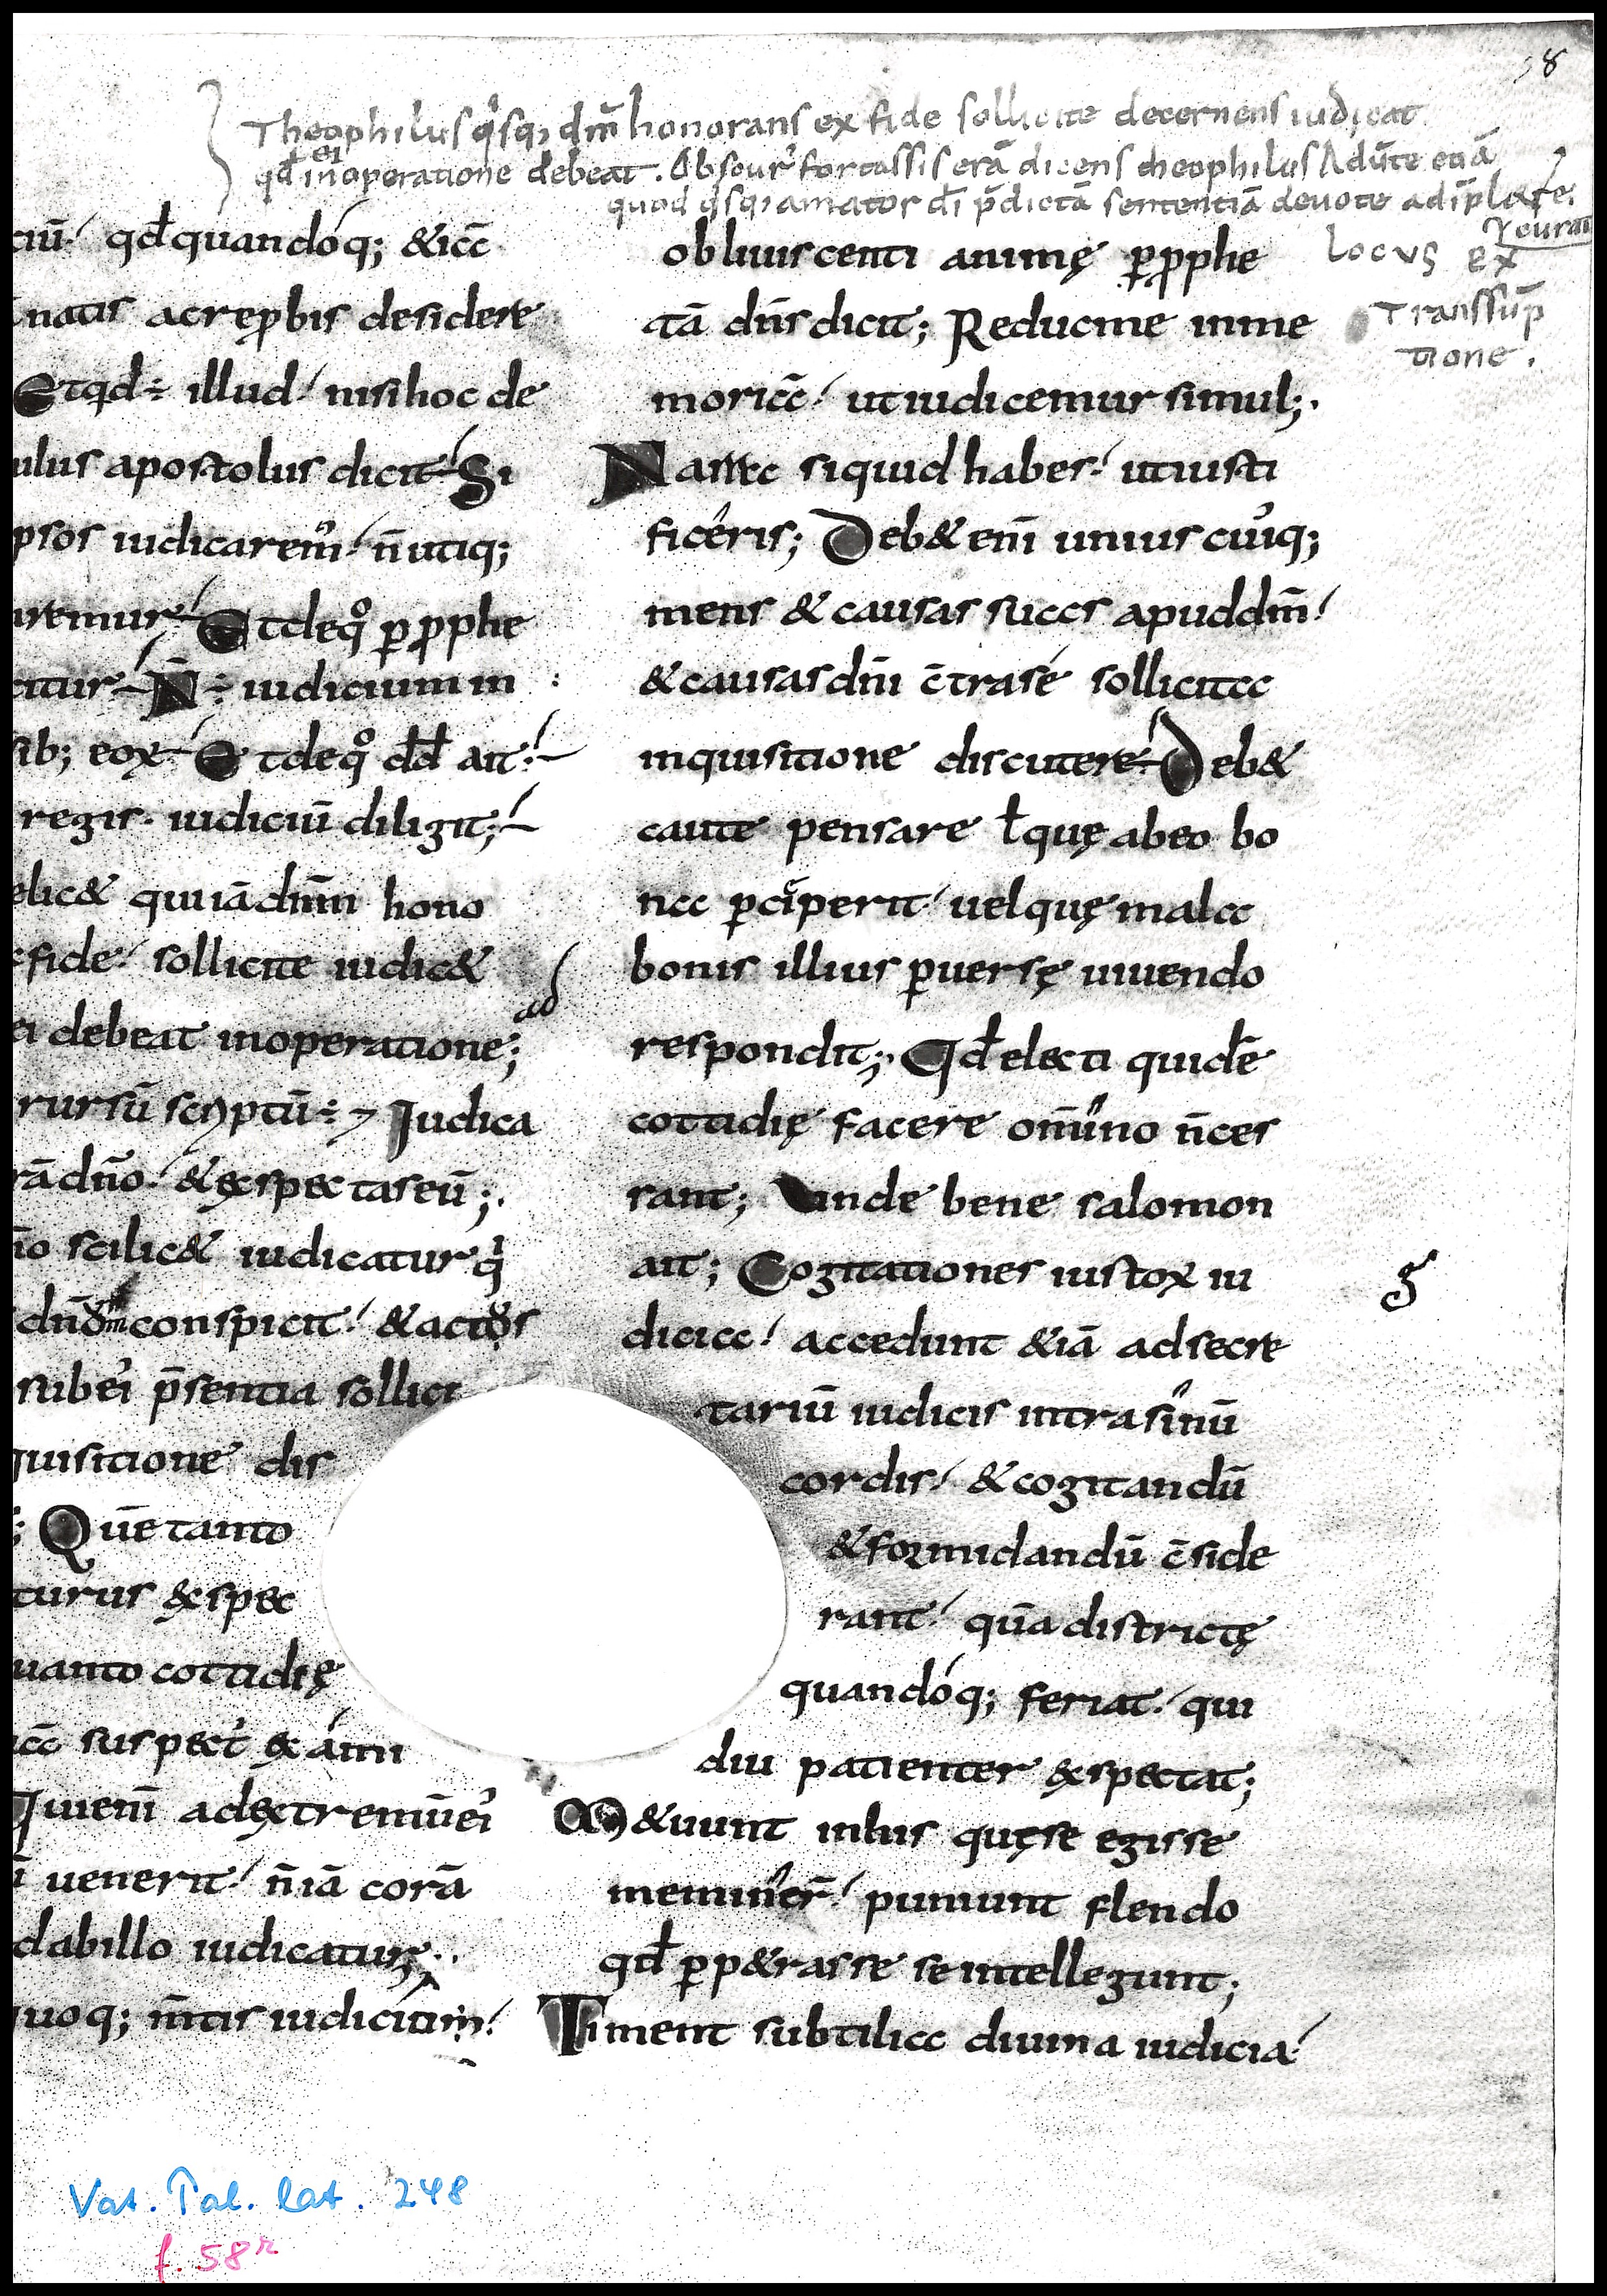 58
Theophilus q̓sq; dm̄ honorans ex fide sollicite decernens iudicat
qđ ei in operatione debeat. Obscur᾽ fortassis erā dicens theophilus Adūte etiā
quod q̓sq; amator dī p̄dictā sententiā deuote adīpleƷ
locus ex
transsūp
tione.
ciū᾽ qđ quandóq; &icc̄
natis ac rep̱bis desidere
Et qd÷ illud᾽ nisi hoc de
ulus apostolus dicit Si
psos iudicarem᾽ n̄ utiq;
aremur Et deq̊ ꝑ ꝓphe
citur N̄ ÷ iudicium in
sib; eoꝝ Et deq̊ dđ ait
regis iudiciū diligit;
elic& qui iā dnm̄ hono
fide᾽ sollicite iudic&
ei debeat in operatione; ad
rursū scriptū÷ Iudica
rā dn̄o᾽ & exspectas eū;
īo scilic& iudicatur q̓
dn̄m conspicit᾽ & actus
sub ei᾽ p̄sentia sollici
quisitione dis
; Quē tanto
turus exspec
uanto cottidie̜
icc̄ suspect᾽ ex ámi
Qui enī ad extremū ei᾽
ī uenerit᾽ n̄ iā corā
dabillo iudicatur
quoq; m̄tis iudiciū in᾽
obliuiscenti anime̜ ꝑ ꝓphe
tā dn̄s dicit; Reduc me in me
moricc̄᾽ ut iudicemur simul;
Narrcc si quid habes᾽ ut iusti
ficeris; Deb& enī unius cui᾽q;
mens & causas succs apud dm̄᾽
& causas dn̄i c̄tra sé sollicitcc
inquisitione discutere Deb&
caute pensare ł que̜ ab eo bo
ncc ꝑciperit᾽ uel que̜ malcc
bonis illius ꝑuerse̜ uiuendo
respondit; Qđ electi quidē
cottidie̜ facere omnino n̄ ces
sant; Unde bene salomon
ait; Cogitationes iustoꝝ iu
dicicc᾽ accedunt &iā ad secre
tariū iudicis intra sinū
cordis᾽ & cogitandū
& formidandū c̄side
rant᾽ quā districte̜
quandóq; feriat᾽ qui
diu patienter exspectat;
M&uunt intus que̜ se egisse
meminer̄᾽ puniunt flendo
qđ ꝑp&rasse se intellegunt;
Timent subtilicc diuina iudicia᾽
Vat. Pal. lat. 248
f. 58r